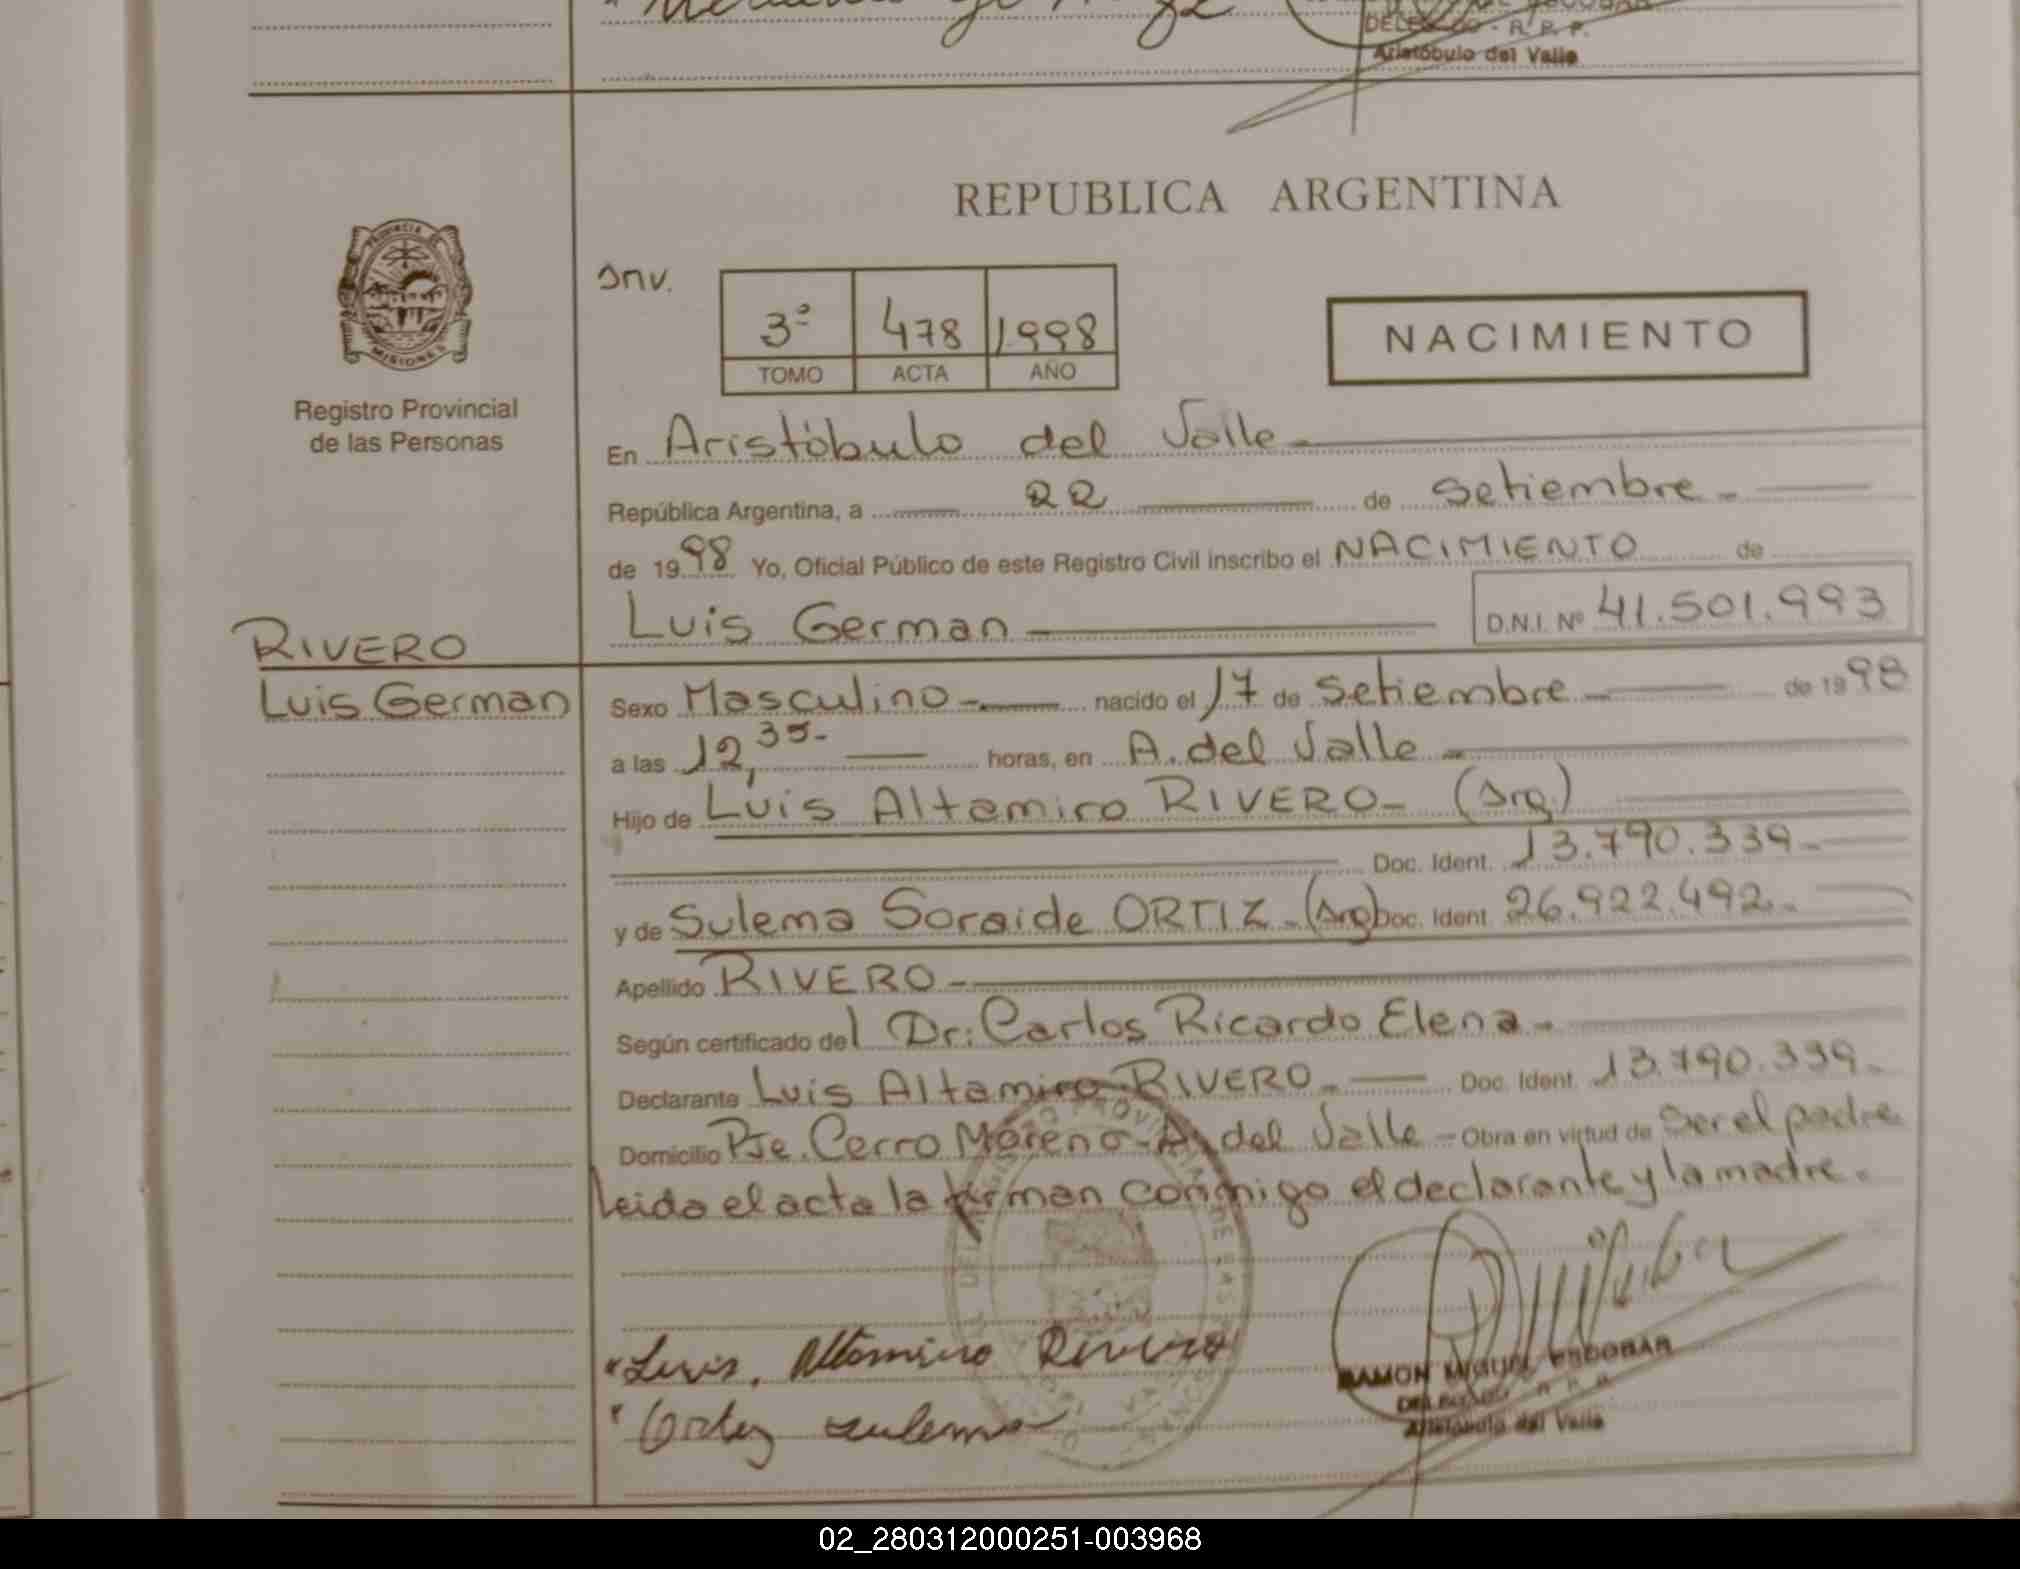 DELEGADO - R. P. P.
Aristóbulo del Valle
REPUBLICA ARGENTINA
PROVINCIA DE
MISIONES
Registro Provincial
de las Personas
Inv.
3º 478 1998
TOMO ACTA AÑO
NACIMIENTO
En Aristóbulo del Valle -
República Argentina, a 22 de Setiembre -
de 1998 Yo, Oficial Público de este Registro Civil inscribo el NACIMIENTO de
Luis German D.N.I. Nº 41.501.993
RIVERO
Luis German
Sexo Masculino - nacido el 17 de Setiembre - de 1998
a las 12,35- horas, en A. del Valle -
Hijo de Luis Altamiro RIVERO - (Arg.)
Doc. Ident. 13.790.339 -
y de Sulema Soraide ORTIZ - (Arg) Doc. Ident. 26.922.492 -
Apellido RIVERO -
Según certificado del Dr: Carlos Ricardo Elena -
Declarante Luis Altamiro RIVERO - Doc. Ident. 13.790.339 -
Domicilio Pje. Cerro Moreno - A. del Valle - Obra en virtud de Ser el padre
Leida el acta la firman conmigo el declarante y la madre.
Luis, Altamiro Rivero
Ortiz sulema
RAMON MIGUEL ESCOBAR
DELEGADO - R. P. P.
Aristóbulo del Valle
02_280312000251-003968